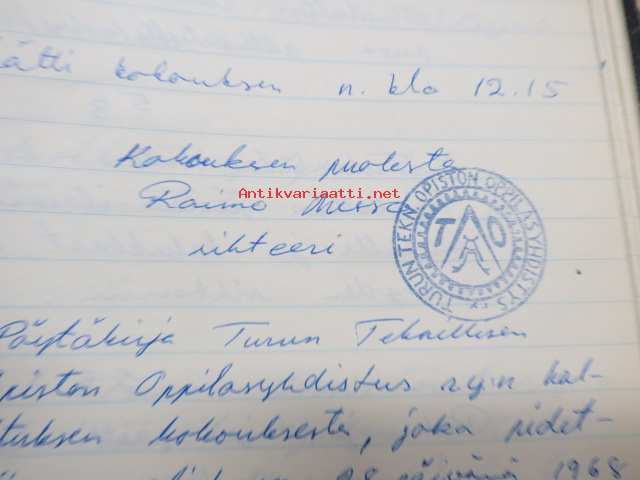 kokouksen n. klo 12.15
Kokouksen puolesta
Antikvariaatti.net
Raimo
sihteeri
TURUN TEKN. OPISTON OPPILASYHDISTYS r.y.
TAO
Pöytäkirja Turun Teknillisen
Opiston Oppilasyhdistus ry:n hal-
kokouksesta, joka pidet-
päivänä 1968